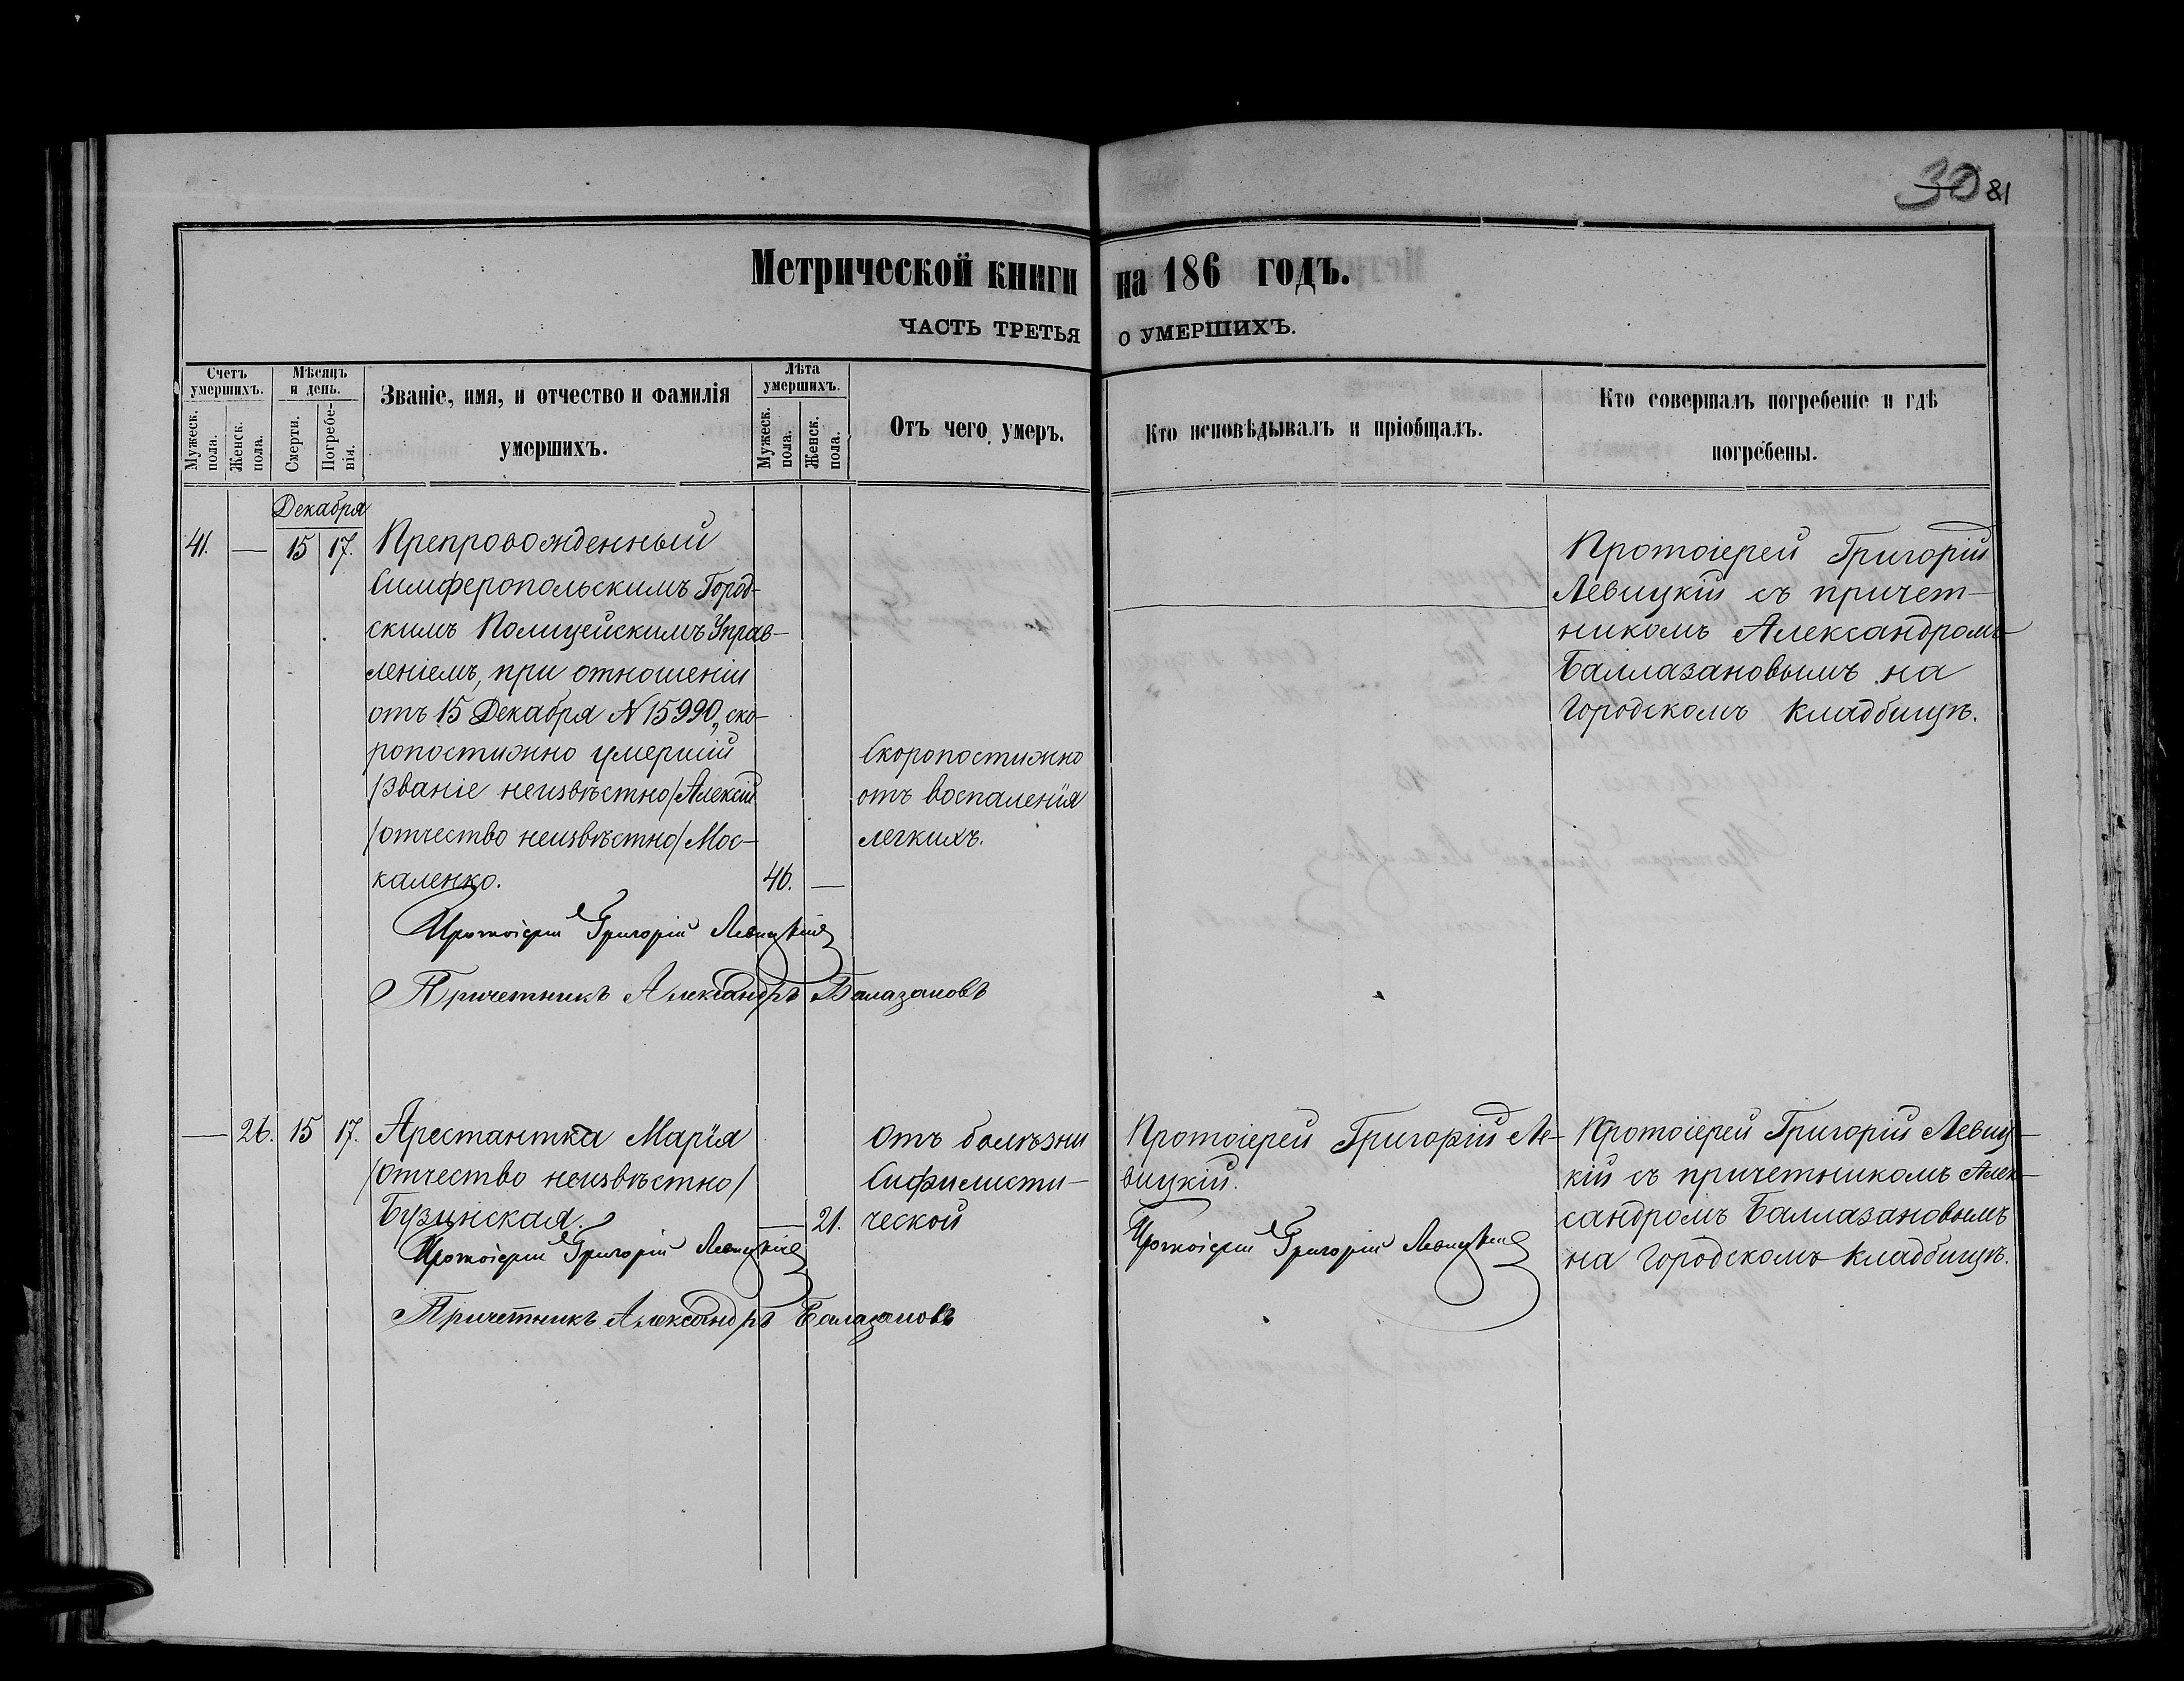 30 81
Метрической книги на 186 годъ.
ЧАСТЬ ТРЕТЬЯ О УМЕРШИХЪ.
Счетъ умершихъ.
Мужеск. пола.
Женск. пола.
Мѣсяцъ и день.
Смерти.
Погребенія.
Званіе, имя, и отчество и фамилія
умершихъ.
Лѣта умершихъ.
Мужеск. пола.
Женск. пола.
Отъ чего умеръ.
Кто исповѣдывалъ и пріобщалъ.
Кто совершалъ погребеніе и гдѣ
погребены.
Декабря
41. — 15 17. Препровожденный
Симферопольскимъ Город-
скимъ Полицейскимъ Управ-
леніемъ, при отношеніи
отъ 15 Декабря N 15990, ско-
ропостижно умершій
/Званіе неизвѣстно/ Алексій
/отчество неизвѣстно/ Мос-
каленко. 46. —
Скоропостижно
отъ воспаленія
легкихъ.
Протоіерей Григорій
Левицкій съ причет-
никомъ Александромъ
Баллазановымъ на
Городскомъ кладбищѣ.
Протоіерей Григорій Левицкій
Причетникъ Александръ Балазановъ
— 26. 15 17. Арестантка Марія
/отчество неизвѣстно/
Бузинская. — 21.
Отъ болѣзни
Сифилисти-
ческой
Протоіерей Григорій Ле-
вицкій.
Протоіерей Григорій Левицкій
Протоіерей Григорій Левиц-
кій съ причетникомъ Алек-
сандромъ Баллазановымъ
на Городскомъ кладбищѣ.
Протоіерей Григорій Левицкій
Причетникъ Александръ Балазановъ